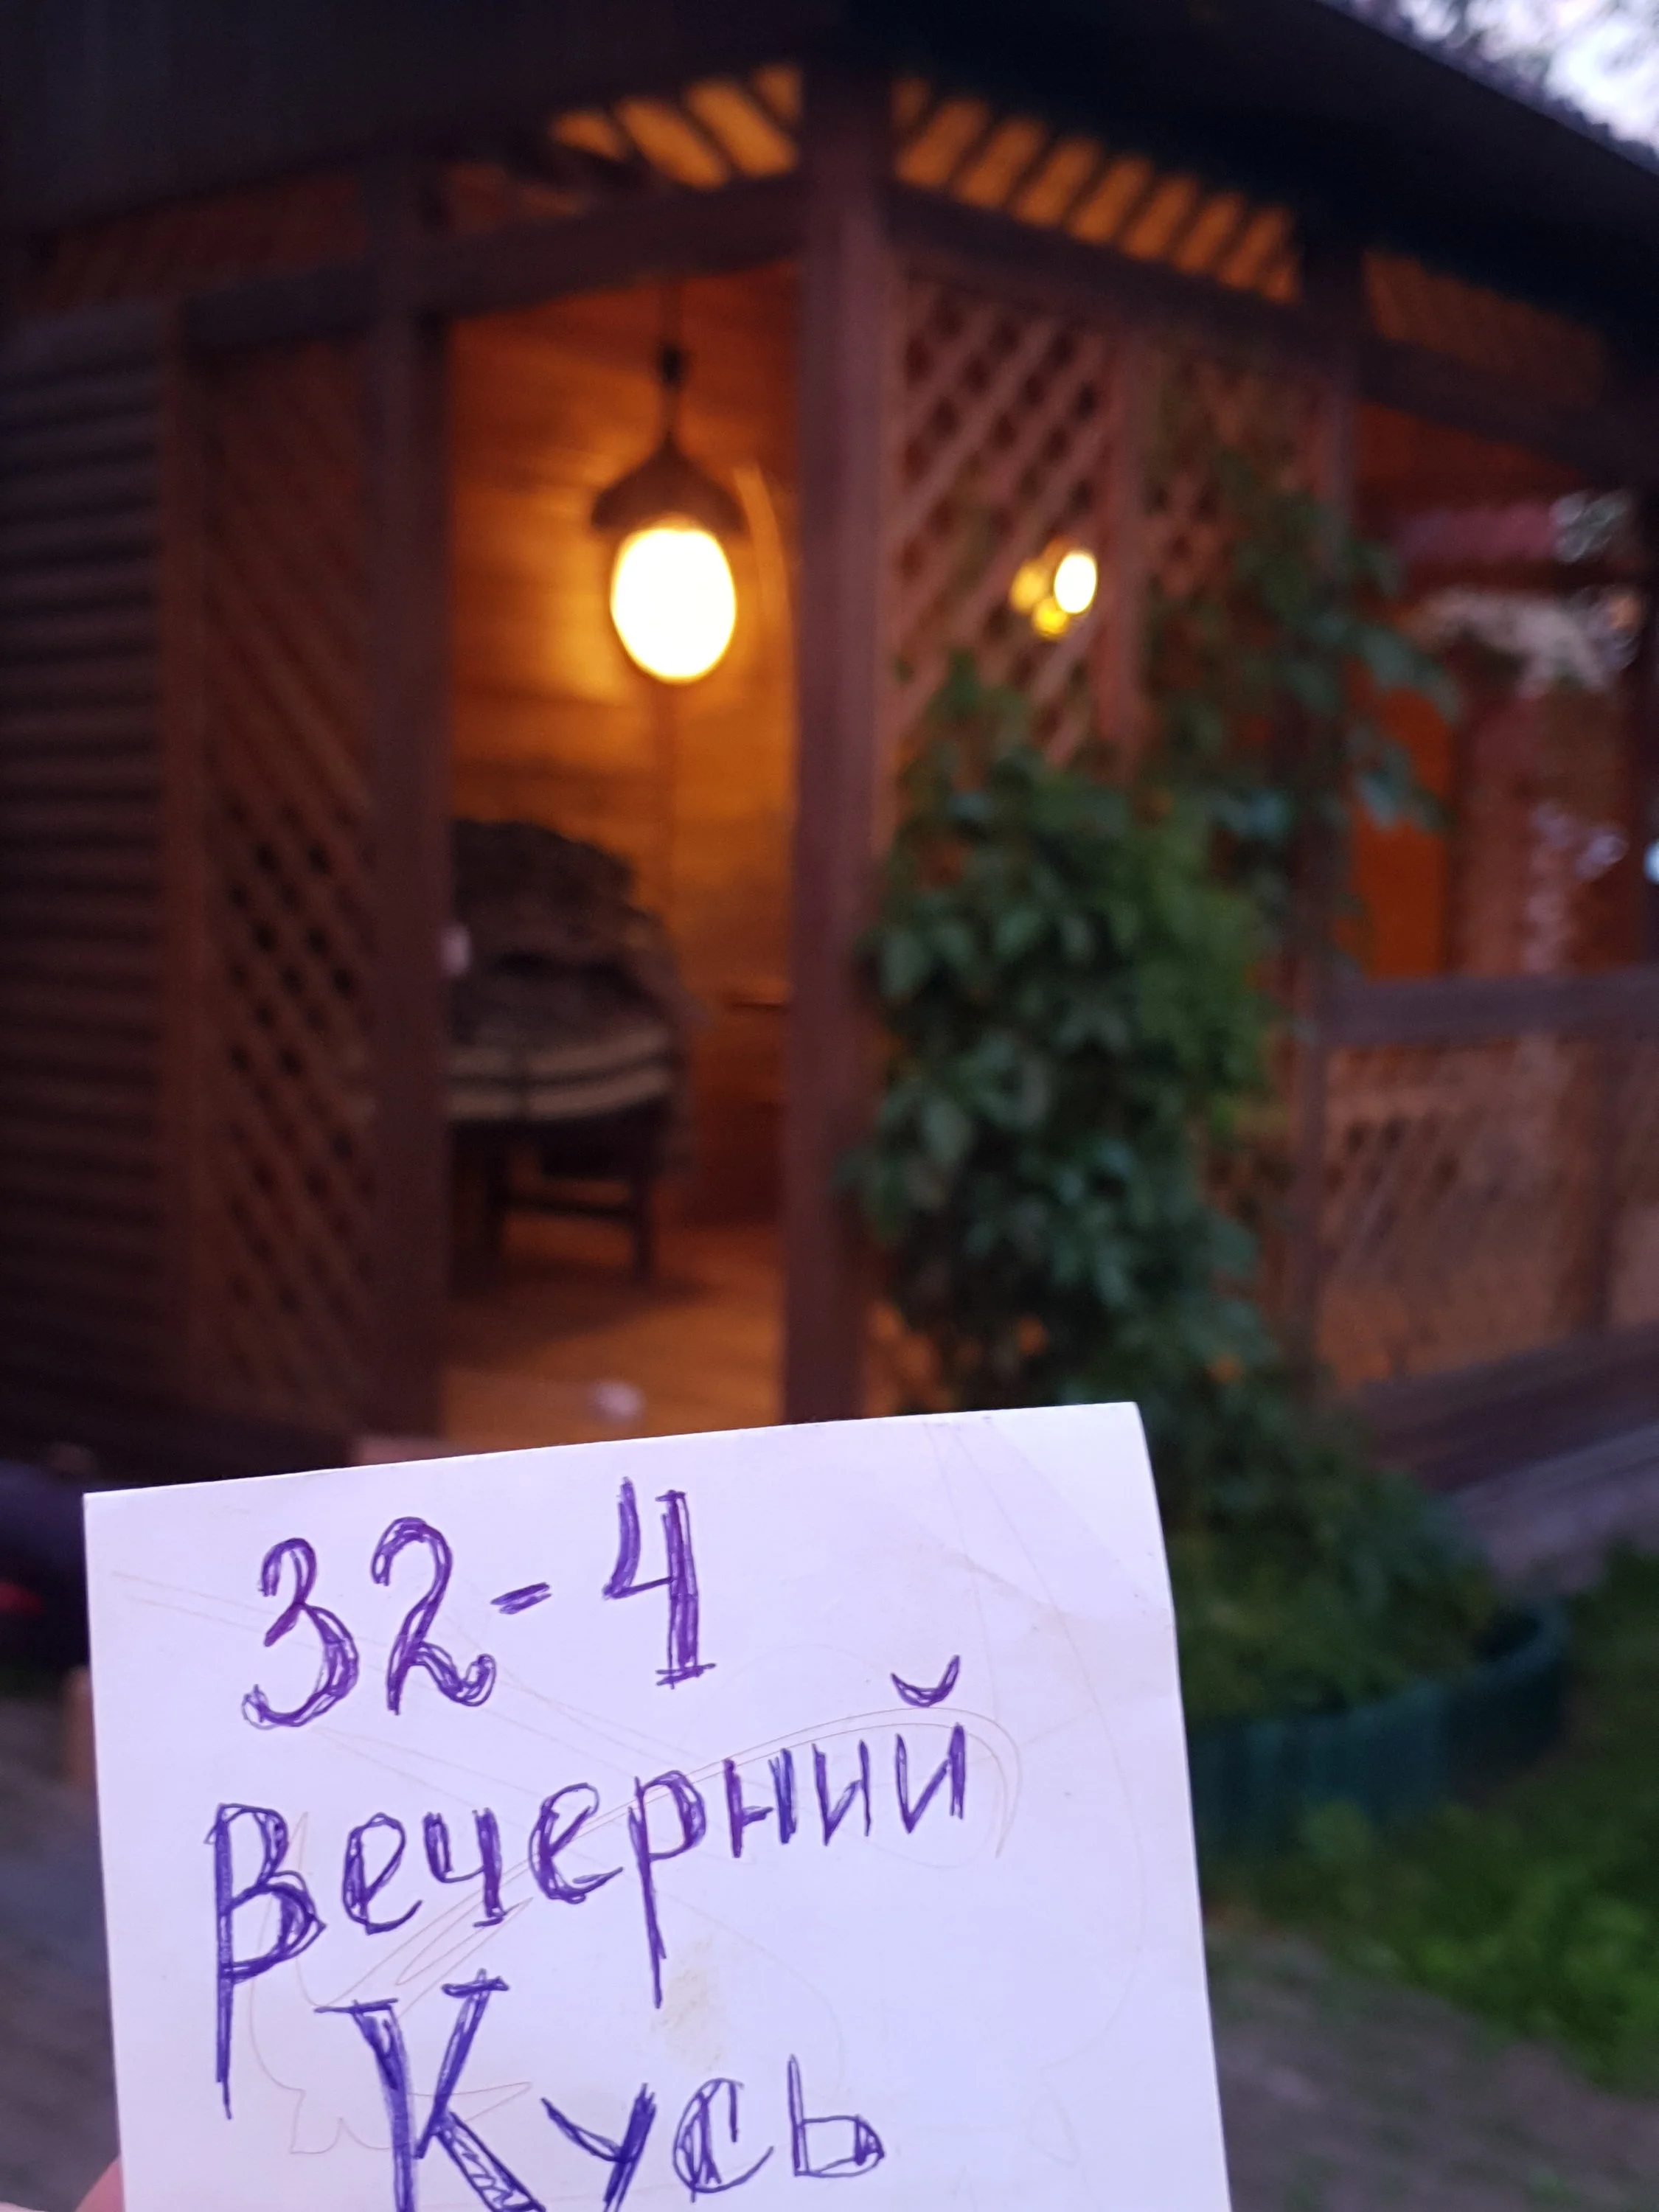 32-4
Вечерний
Кусь